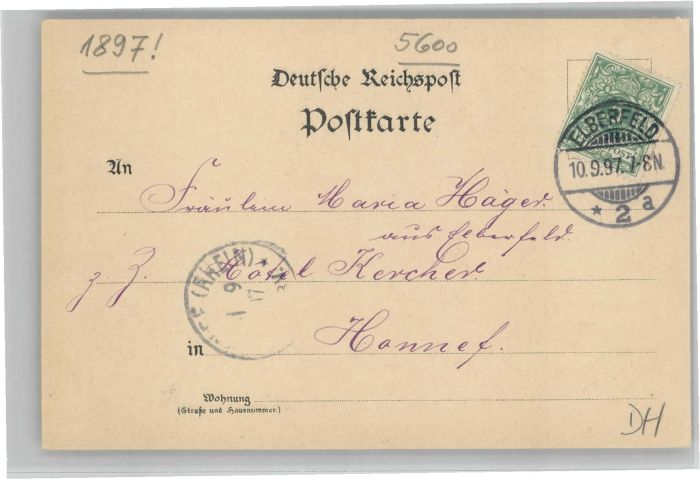 1897!
5600
Deutsche Reichspost
Postkarte
ELBERFELD
10.9.97. 7-8N.
* 2 a
An
Fräulein Maria Häger
aus Elberfeld.
z. Z. Hotel Kercher
(RHEIN) *
in Honnef.
Wohnung
(Straße und Hausnummer.)
DH